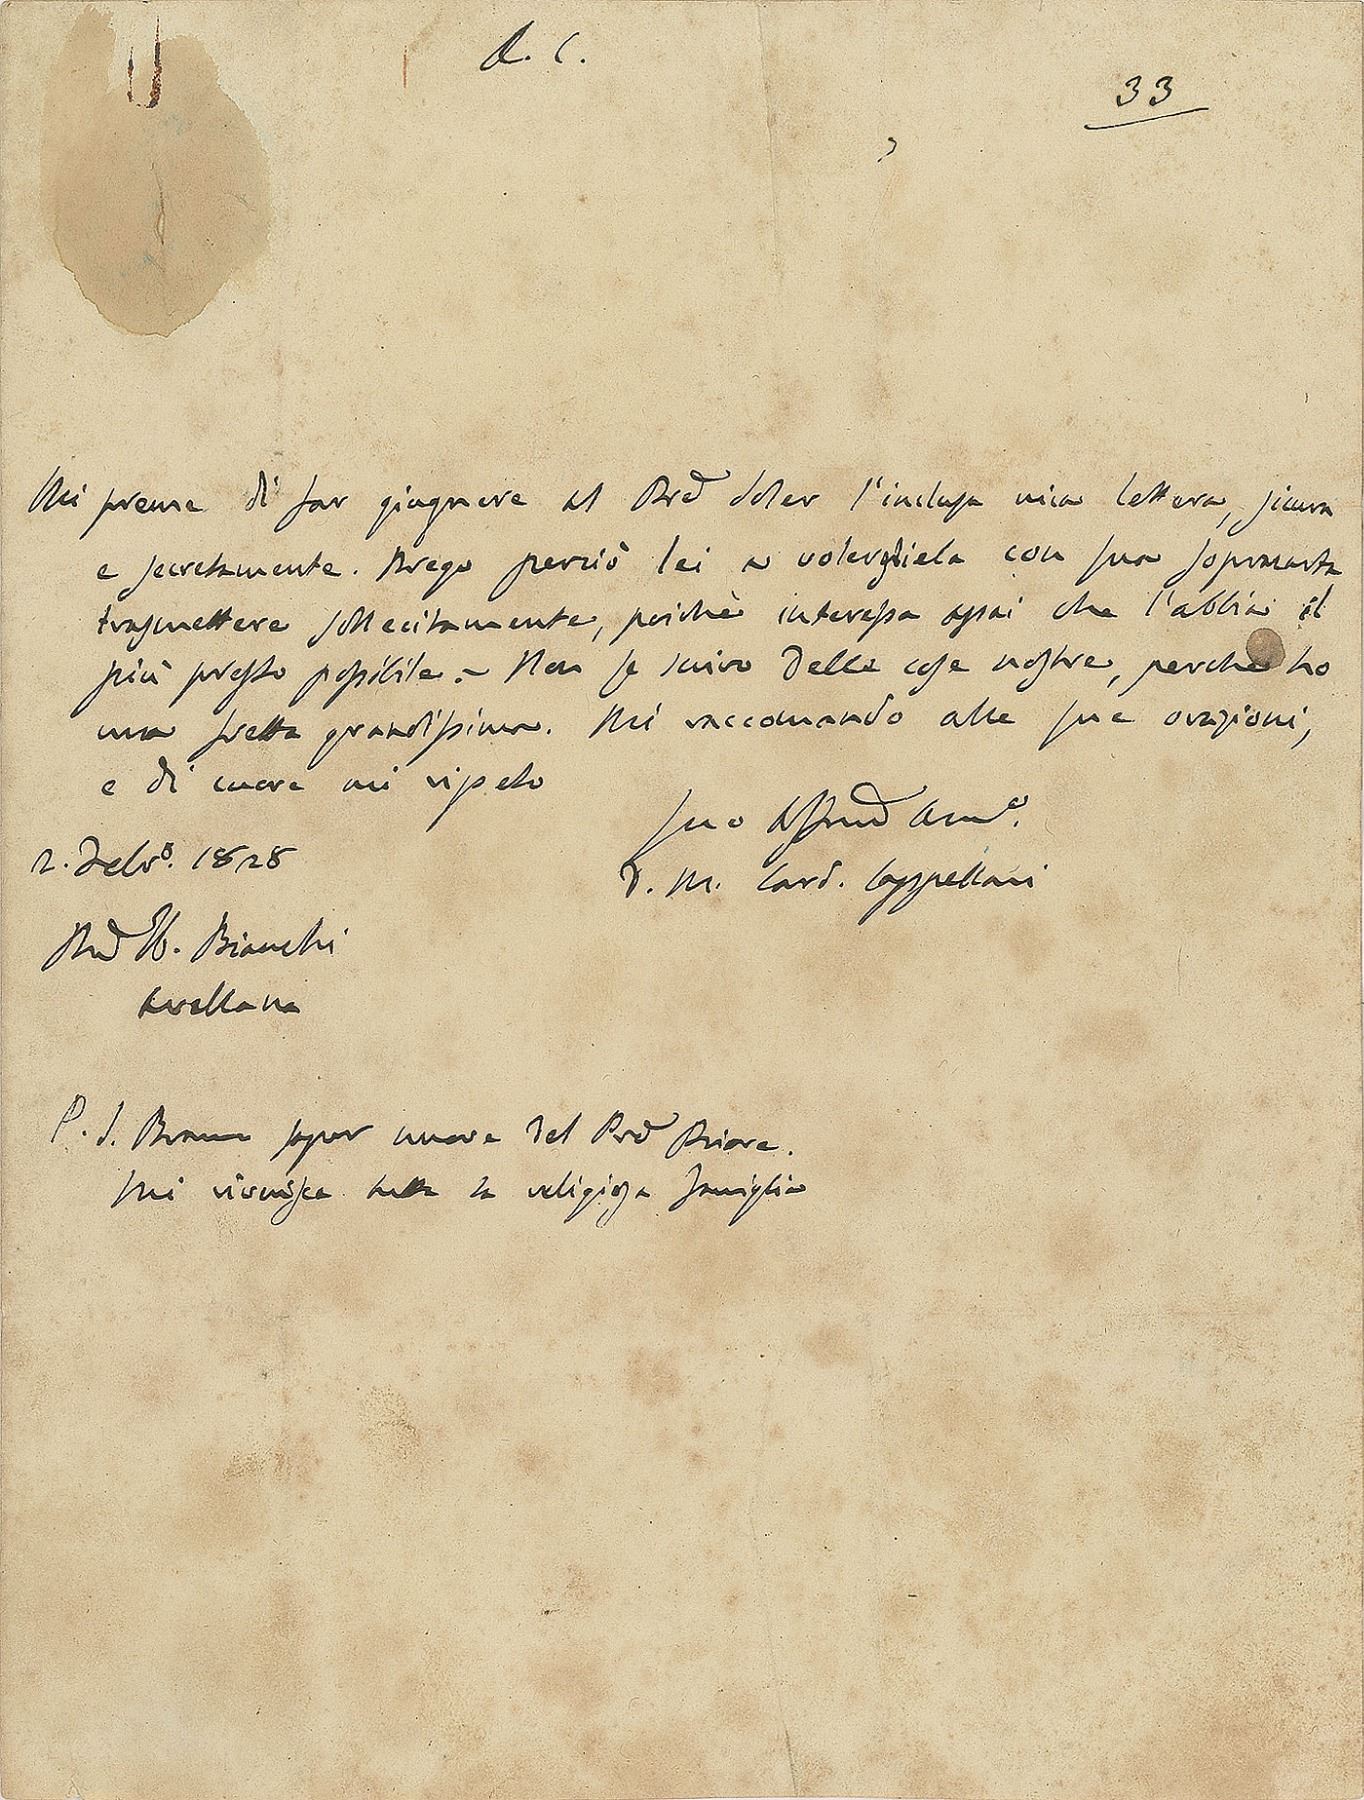 A. C.
33
Mi preme di far giugnere al Pre Soler l'inclusa mia lettera, sicura
e secretamente. Prego perciò lei a volergliela con sua sopracarta
trasmettere sollecitamente, poichè interessa assai che l'abbia il
più presto possibile. ~ Non le scrivo delle cose nostre, perche ho
una fretta grandissima. Mi raccomando alle sue orazioni,
e di cuore mi ripeto
suo Amo.
2. Febro. 1828
D. M. Card. Cappellari
Bianchi
Avellana
P. S. Bramo saper nuove del Pre Priore.
Mi riverisca tutta la religiosa famiglia